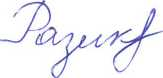 Разик